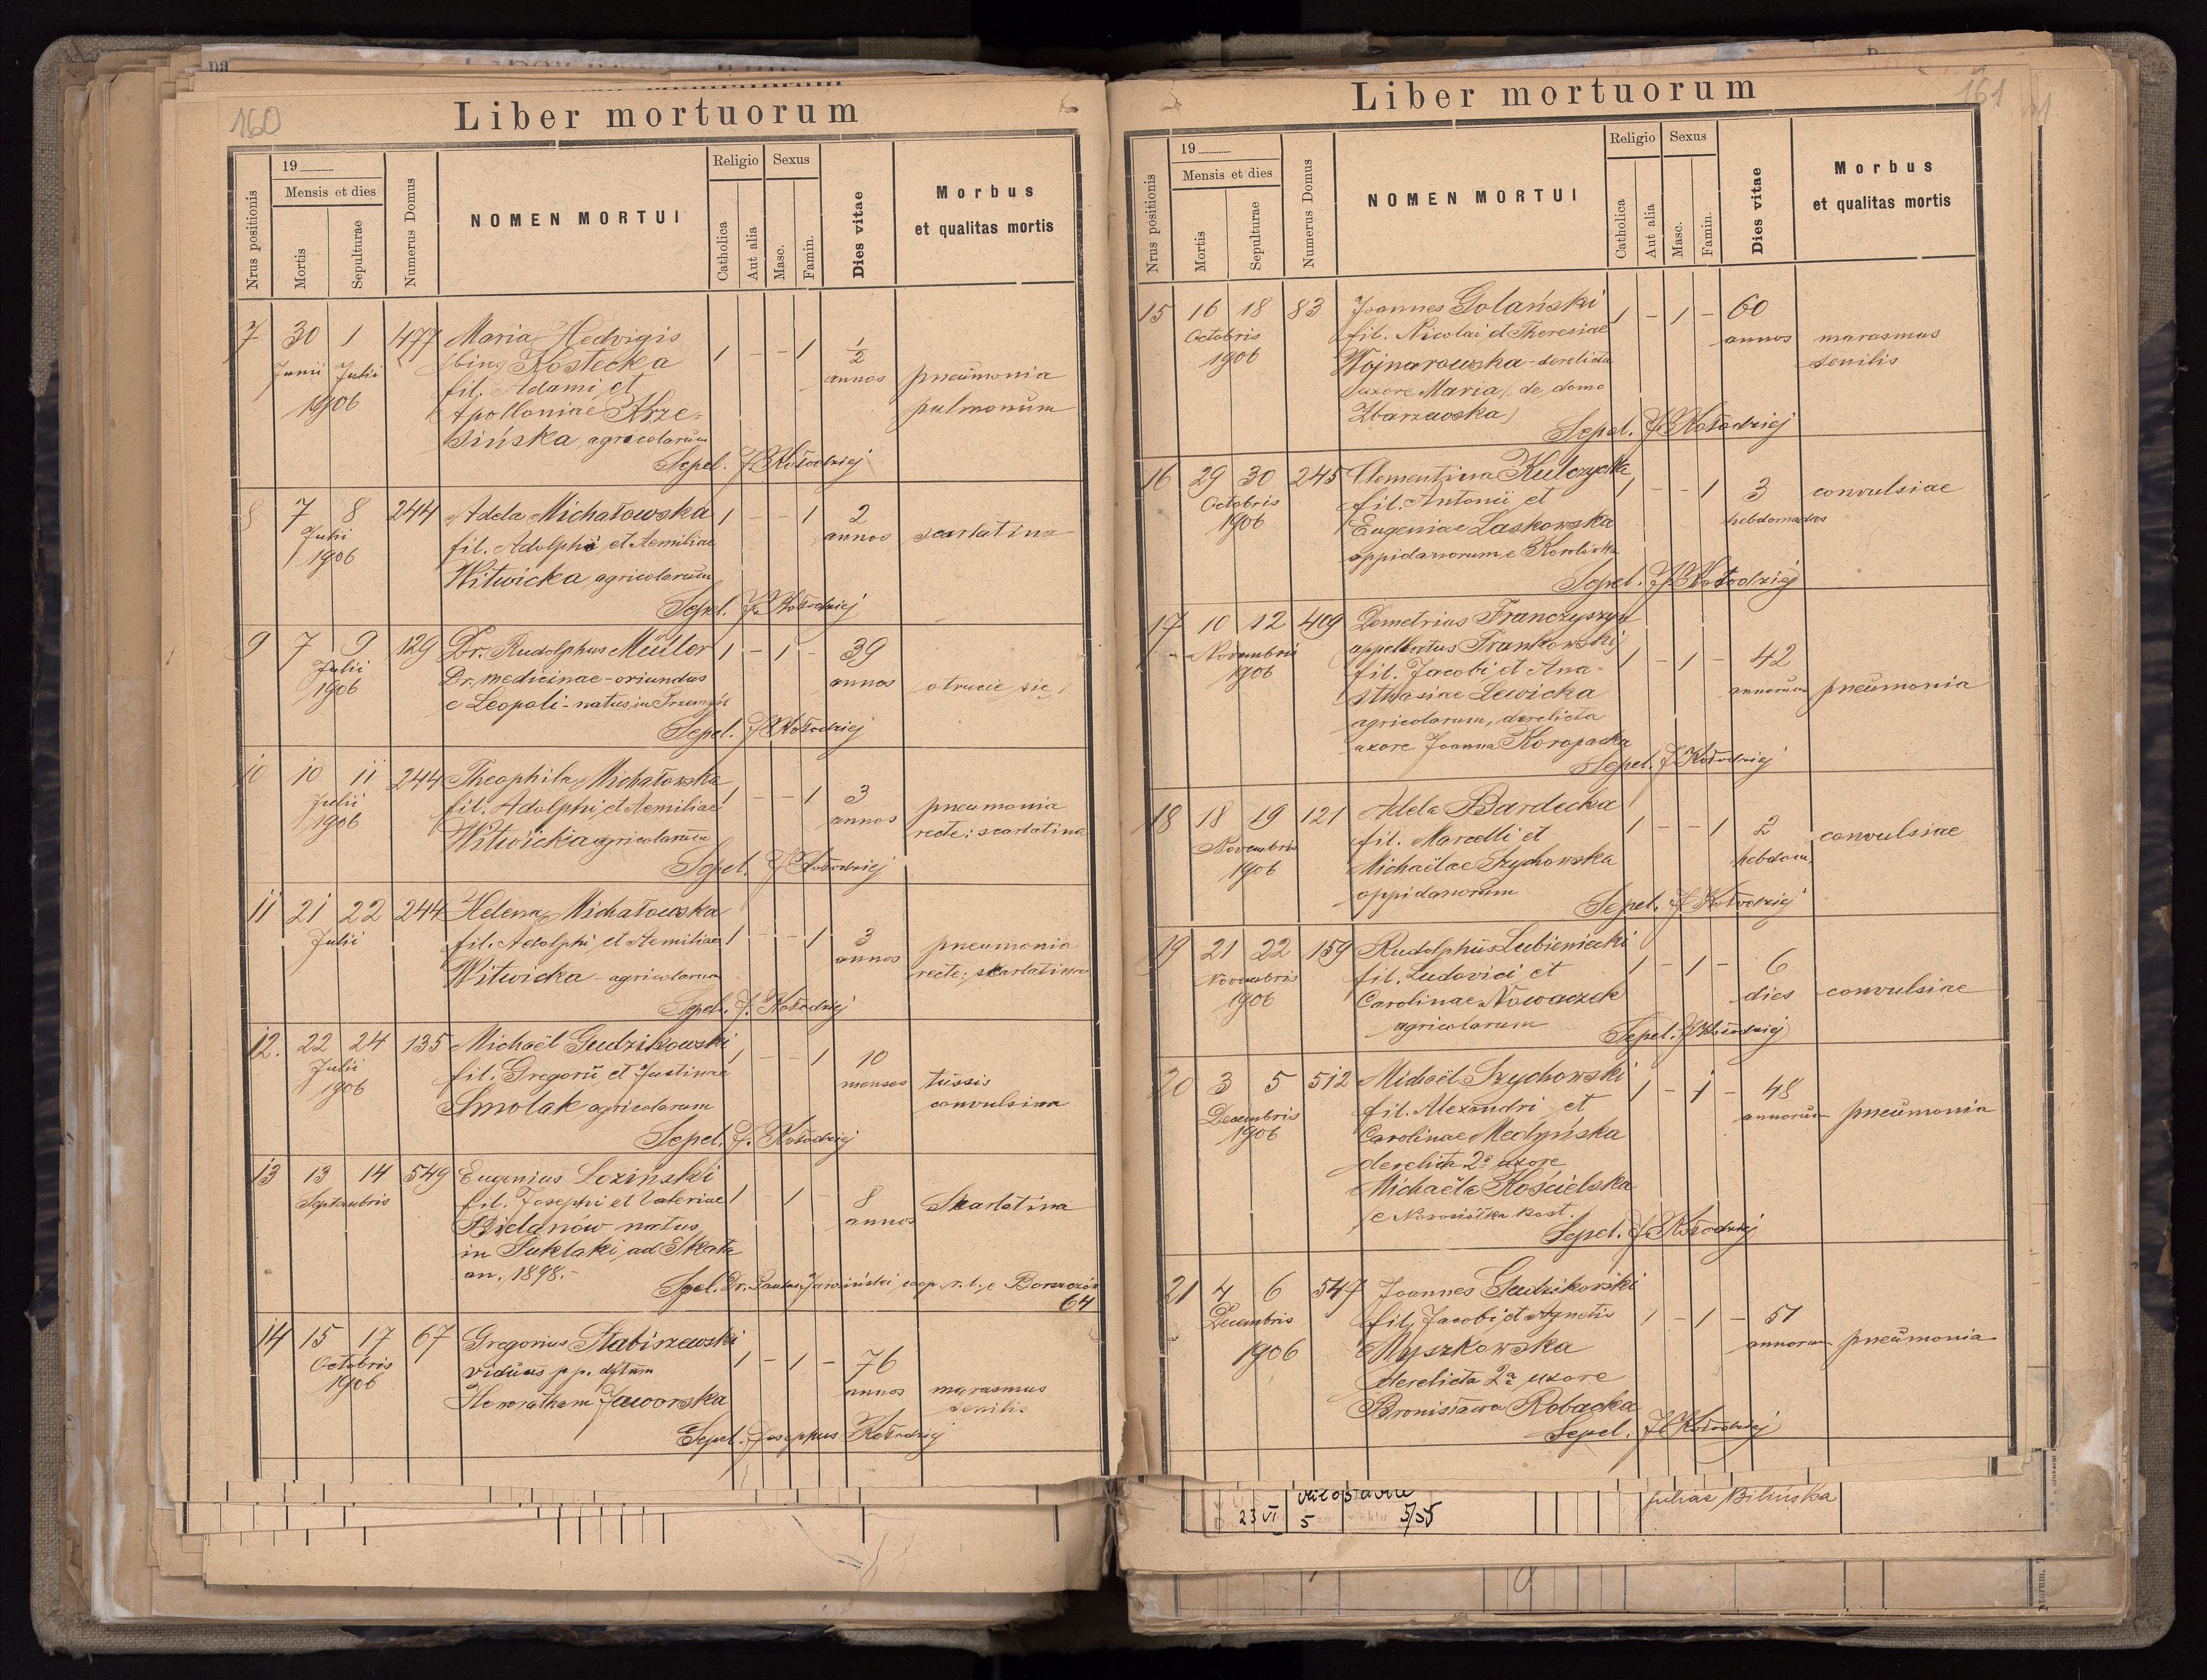 160
Liber mortuorum
Nrus positionis
19
Mensis et dies
Mortis
Sepulturae
Numerus Domus
NOMEN MORTUI
Religio
Catholica
Aut alia
Sexus
Masc.
Famin.
Dies vitae
Morbus
et qualitas mortis
7 30 1 477 Maria Hedvigis
Junii Julii
1906
(bin) Kostecka 1 - - 1 1/2
fil. Adami et annos pneumonia
Apolloniae Krze= pulmonum
sińska agricolarum
Sepel. J. Kołodziej
8 7 8 244 Adela Michałowska 1 - - 1 2
Julii
1906
fil. Adolphi et Aemiliae annos scarlatina
Witwicka agricolarum
Sepel. J. Kołodziej
9 7 9 129 Dr. Rudolphus Müller 1 - 1 - 39
Julii
1906
Dr. medicinae - oriundus annos otrucie się
e Leopoli - natus in Przemyśl
Sepel. J. Kołodziej
10 10 11 244 Theophila Michałowska
Julii
1906
fil. Adolphi et Aemiliae 1 - - 1 3 annos pneumonia
Witwicka agricolarum recte: scarlatina
Sepel. J. Kołodziej
11 21 22 244 Helena Michałowska
Julii
fil. Adolphi et Aemiliae 1 - - 1 3 annos pneumonia
Witwicka - agricolarum recte: skarlatina
Sepel. J. Kołodziej
12. 22 24 135 Michaël Gudzikowski
Julii
1906
fil. Gregorii et Justinae 1 - - 1 10 menses tussis
Smolak agricolarum convulsiva
Sepel. J. Kołodziej
13 13 14 549 Eugenius Loziński
Septembris
fil. Josephi et Valeriae 1 - 1 - 8 annos Skarlatina
Bielanów natus
in ad Skała
an. 1898.-
Sepel. Dr. Paulus coop. r. l. e Borszczów
64
14 15 17 67 Gregorius Stabiszewski
Octobris
1906
viduus p. p. 1 - 1 - 76
Jaworska annos marasmus
senilis
Sepel. Josephus Kołodziej
161
Liber mortuorum
Nrus positionis
19
Mensis et dies
Mortis
Sepulturae
Numerus Domus
NOMEN MORTUI
Religio
Catholica
Aut alia
Sexus
Masc.
Famin.
Dies vitae
Morbus
et qualitas mortis
15 16 18 83 Joannes Golański 1 - 1 - 60
Octobris
1906
fil. Nicolai et Theresiae annos marasmus
Wojnarowska - derelicta senilis
uxore Maria (de domo
Zbarzewska)
Sepel. J. Kołodziej
16 29 30 245 Clementina Kulczycka
Octobris
1906
fil. Antonii et 1 - - 1 3 convulsiae
Eugeniae Laskowska hebdomadas
oppidanorum e Korolówka
Sepel. J. Kołodziej
17 10 12 409 Demetrius Franczyszyn
Novembris
1906
appellatus Frankowski
fil. Jacobi et Ana= 1 - 1 - 42
sthasiae Lewicka annorum pneumonia
agricolarum, derelicta
uxore Joanna Koropacka
Sepel. J. Kołodziej
18 18 19 121 Adela Bardecka
Novembris
1906
fil. Marcelli et 1 - - 1 2 convulsiae
Michaëlae Szychowska hebdom.
oppidanorum
Sepel. J. Kołodziej
19 21 22 159 Rudolphus Lubieniecki
Novembris
1906
fil. Ludovici et 1 - 1 - 6
Carolinae Nowaczek dies convulsiae
agricolarum
Sepel. J. Kołodziej
20 3 5 512 Michaël Szychowski
Decembris
1906
fil. Alexandri et 1 - 1 - 48
Carolinae Medyńska annorum pneumonia
derelicta 2ª uxore
Michaëla Kościelska
e Nowosiółka kost.
Sepel. J. Kołodziej
21 4 6 547 Joannes Gudzikowski
Decembris
1906
fil. Jacobi et Agnetis 1 - 1 - 51
Myszkowska annorum pneumonia
derelicta 2ª uxore
Bronisława Robacka
Sepel. J. Kołodziej
23 VI 5
Juliae Bilińska